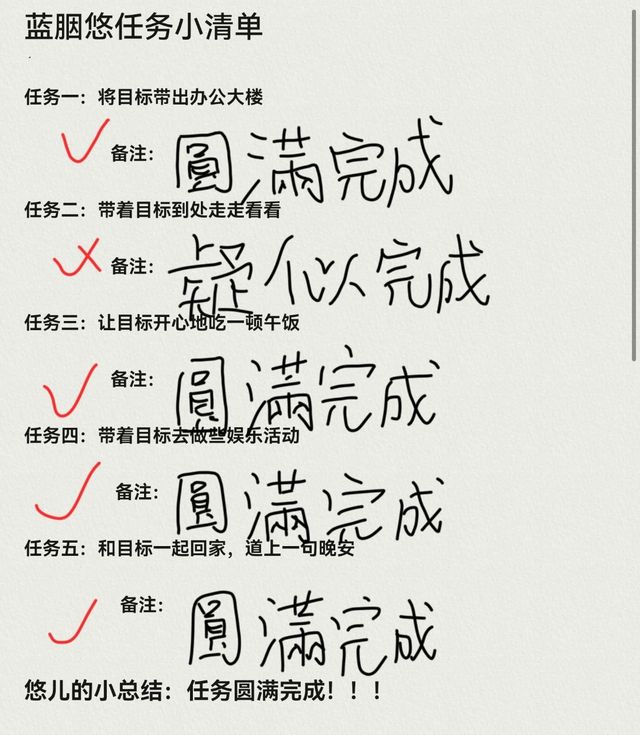 蓝胭悠任务小清单
任务一：将目标带出办公大楼
备注：圓滿完成
任务二：带着目标到处走走看看
备注：疑似完成
任务三：让目标开心地吃一顿午饭
备注：圓滿完成
任务四：带着目标去做些娱乐活动
备注：圓滿完成
任务五：和目标一起回家，道上一句晚安
备注：圓滿完成
悠儿的小总结：任务圆满完成！！！